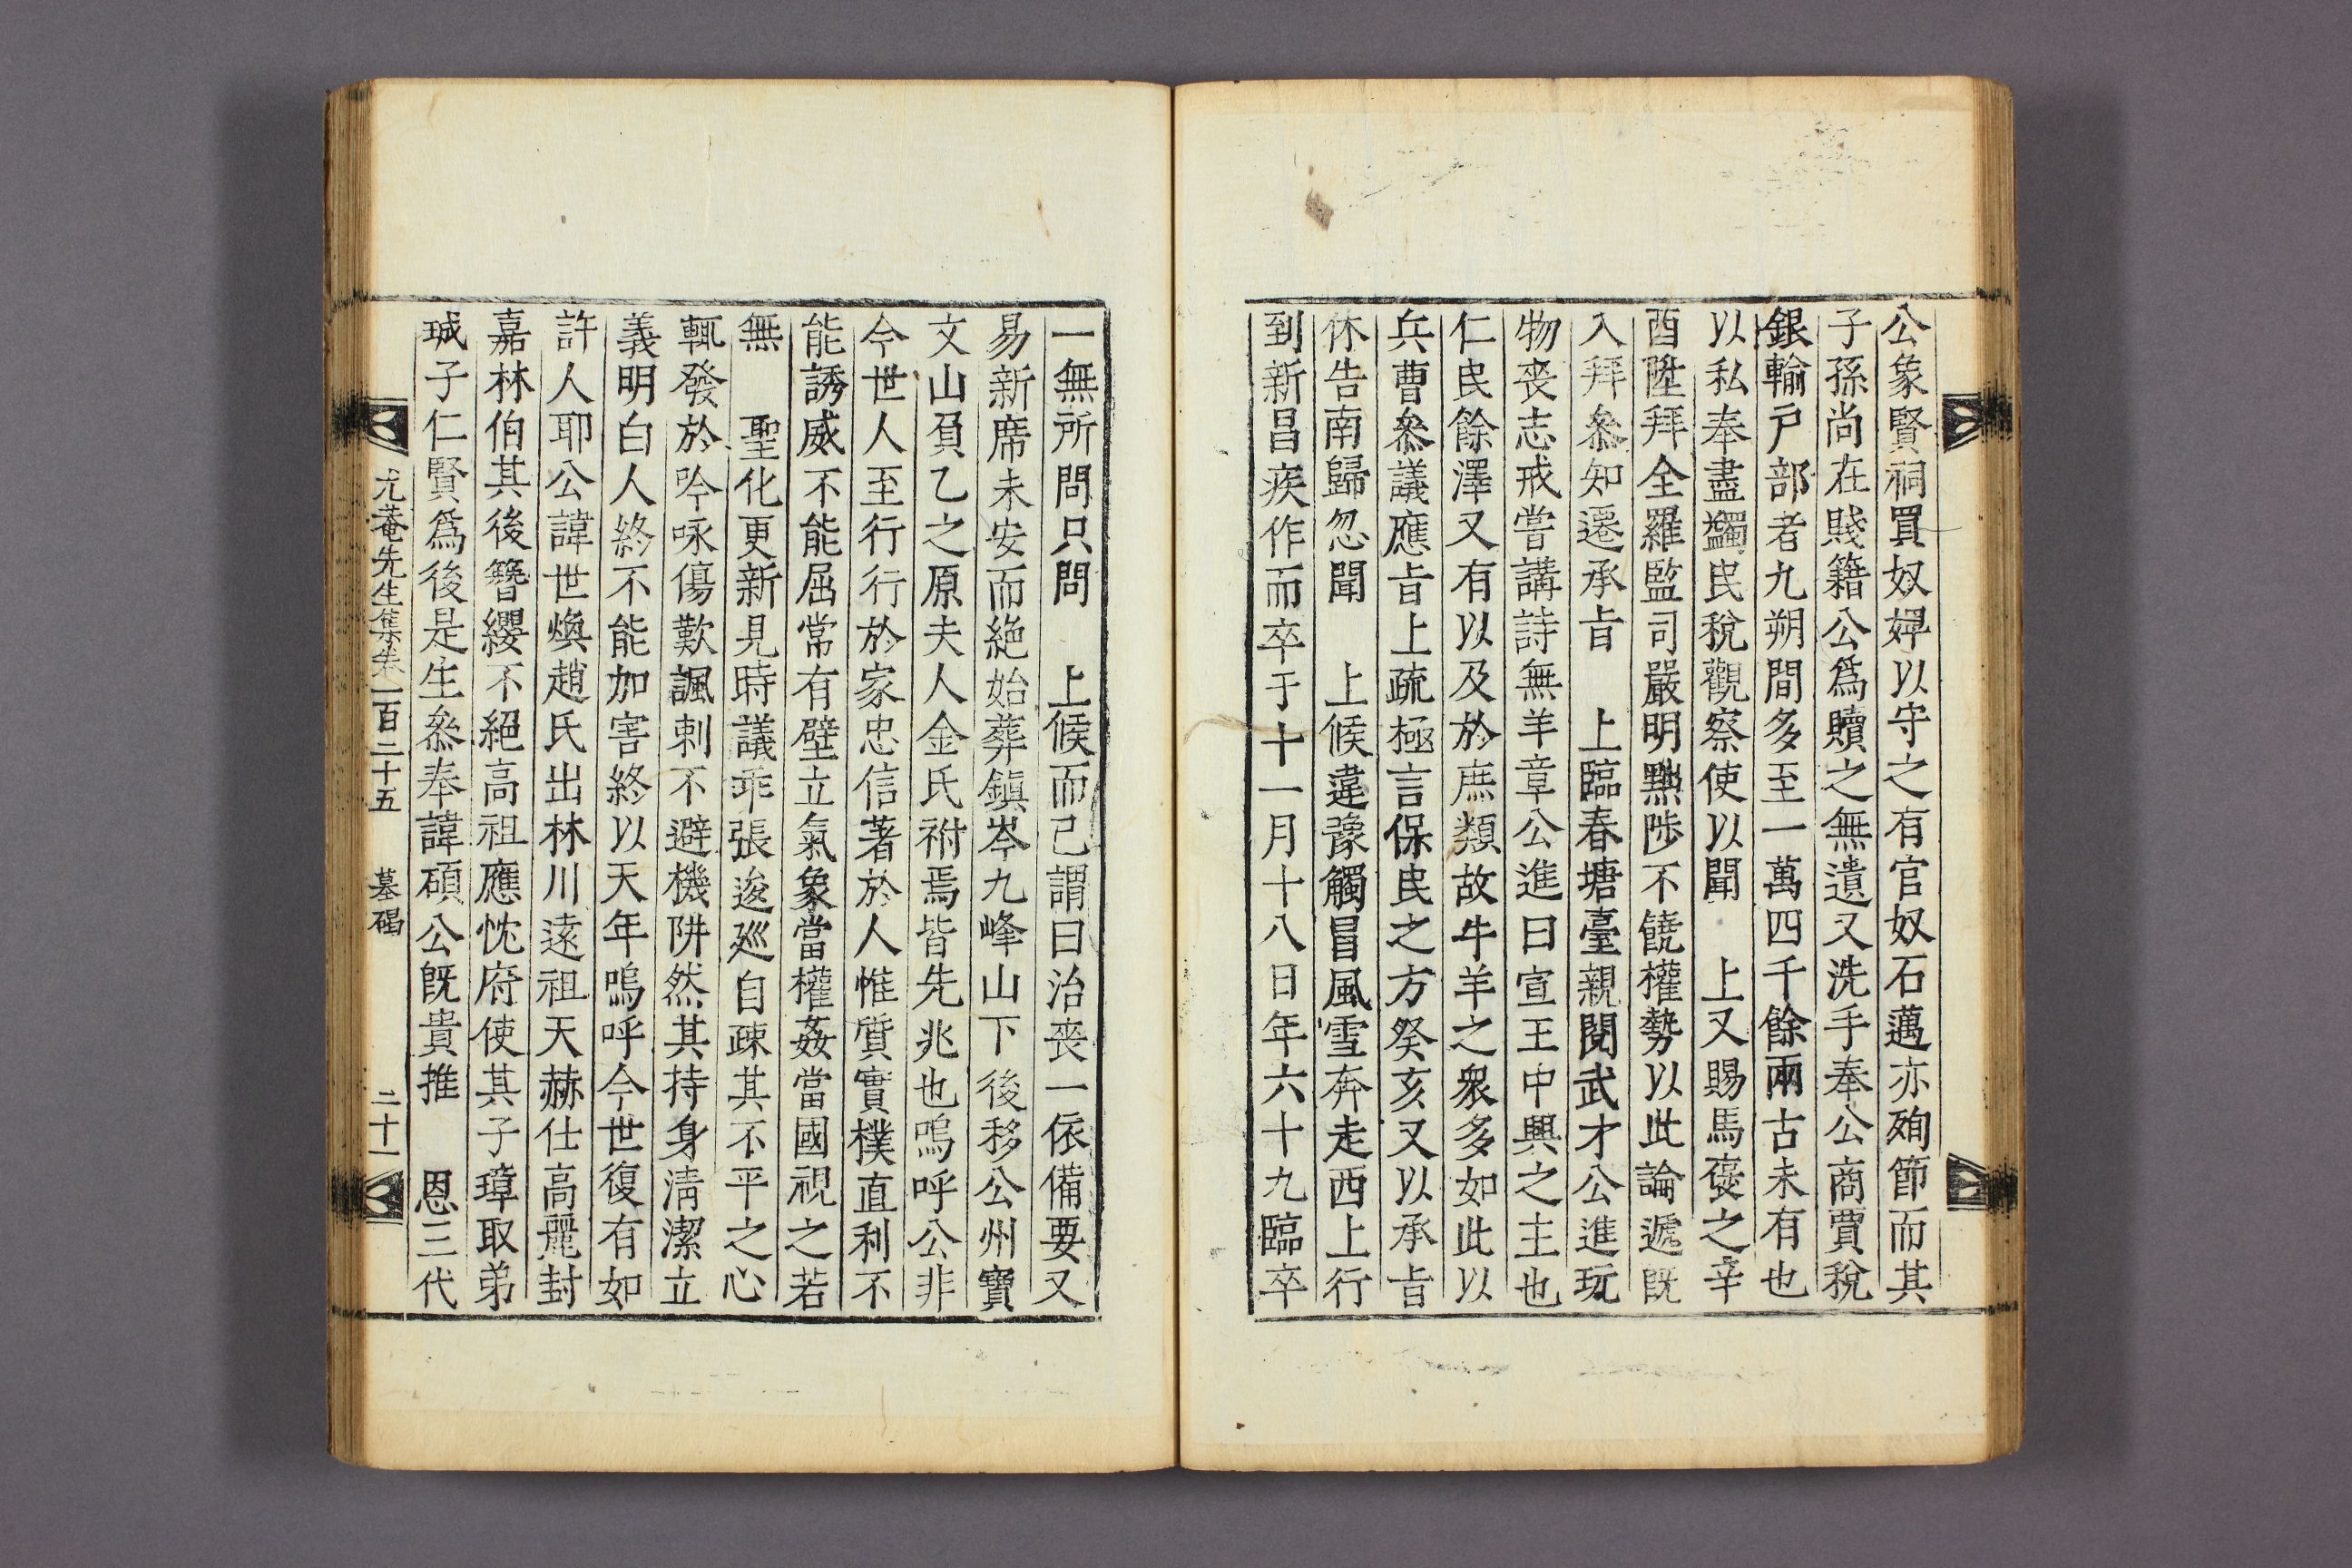 公象賢祠買奴婢以守之有官奴石邁亦殉節而其
子孫尚在賤籍公爲贖之無遺又洗手奉公商賈稅
銀輸戶部者九朔間多至一萬四千餘兩古未有也
以私奉盡蠲民稅觀察使以聞　上又賜馬褒之辛
酉陞拜全羅監司嚴明黜陟不饒權勢以此論遞旣
入拜叅知遷承旨　上臨春塘臺親閱武才公進玩
物喪志戒嘗講詩無羊章公進曰宣王中興之主也
仁民餘澤又有以及於庶類故牛羊之衆多如此以
兵曹叅議應旨上疏極言保民之方癸亥又以承旨
休告南歸忽聞　上候違豫觸冒風雪奔走西上行
到新昌疾作而卒于十一月十八日年六十九臨卒
一無所問只問　上候而已謂曰治喪一依備要又
易新席未安而絶始葬鎭岑九峰山下後移公州寶
文山負乙之原夫人金氏祔焉皆先兆也嗚呼公非
今世人至行行於家忠信著於人惟質實樸直利不
能誘威不能屈常有壁立氣象當權姦當國視之若
無　聖化更新見時議乖張逡廵自疎其不平之心
輒發於吟咏傷歎諷刺不避機阱然其持身淸潔立
義明白人終不能加害終以天年嗚呼今世復有如
許人耶公諱世煥趙氏出林川遠祖天赫仕高麗封
嘉林伯其後簪纓不絕高祖應忱府使其子璋取弟
珹子仁賢爲後是生叅奉諱碩公旣貴推　恩三代
尤菴先生集卷一百二十五　墓碣　二十一